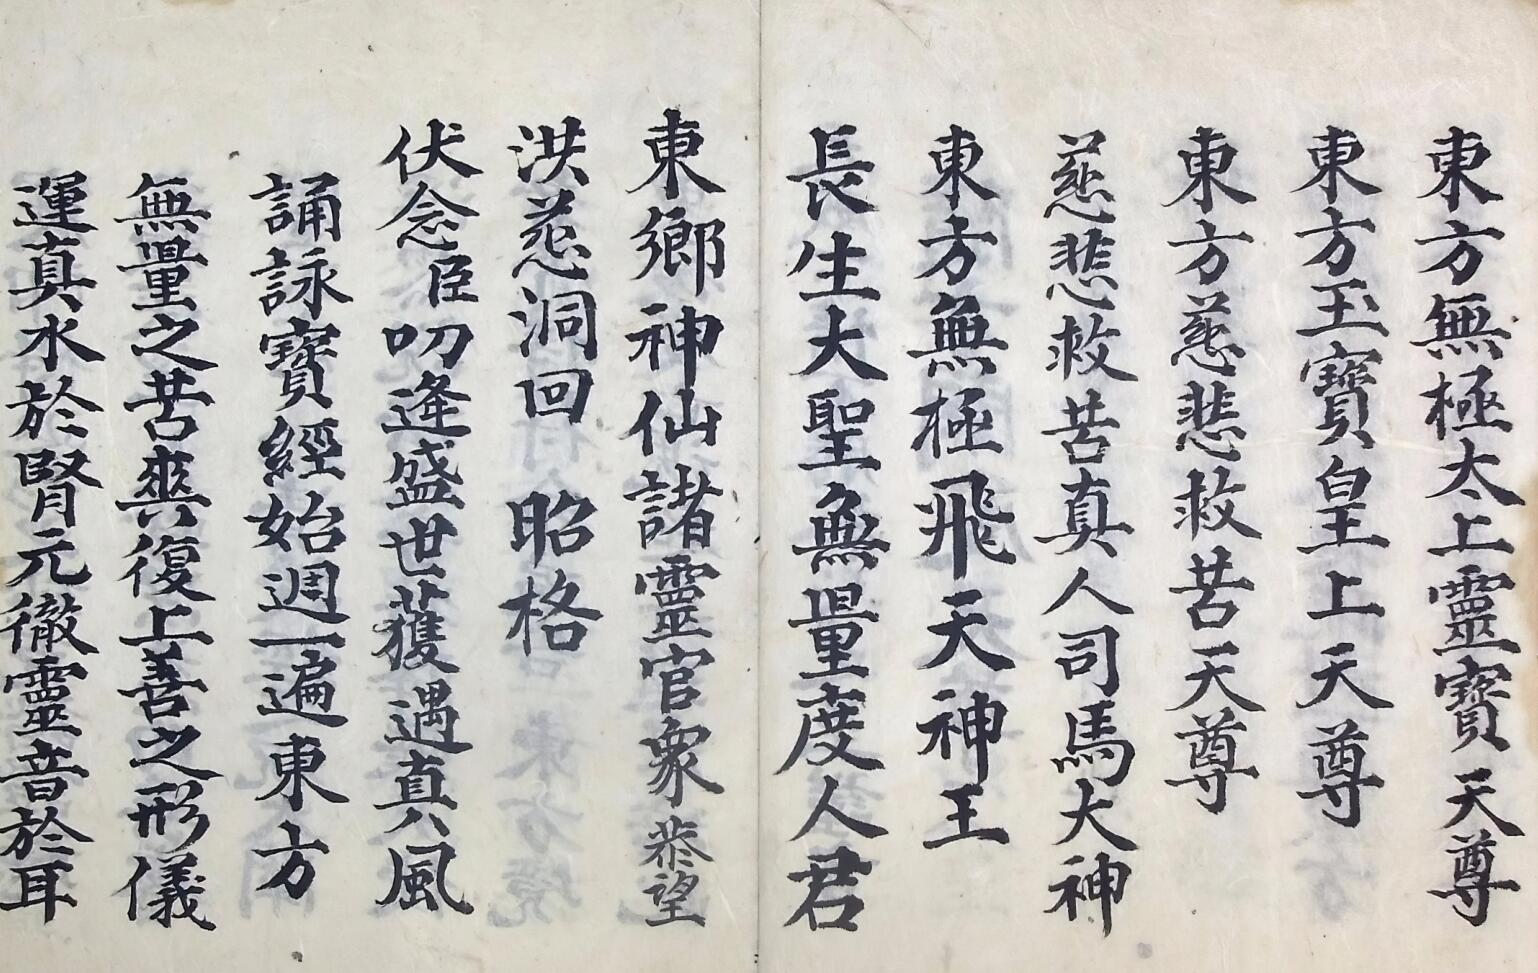 東方無極太上靈寶天尊
東方玉寶皇上天尊
東方慈悲救苦天尊
慈悲救苦真人司馬大神
東方無極飛天神王
長生大聖無量度人君
東鄉神仙諸靈官衆恭望
洪慈洞回昭格
伏念臣叨逢盛世獲遇真風
誦詠寶經始週一遍東方
無量之苦爽復上善之形儀
運真水於腎元徹靈音於耳